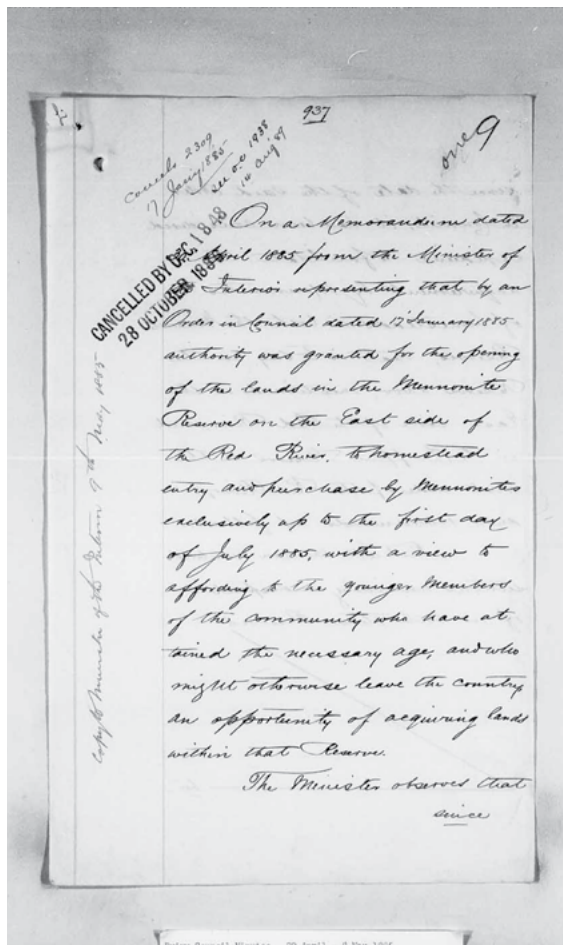 937
one 9
Cancels 2309
17 Jany 1885
see O.C 1938
14 Aug '89
CANCELLED BY P.C. 1848
28 OCTOBER 1885
On a Memorandum dated
April 1885 from the Minister of
Interior representing that by an
Order in Council dated 17 January 1885
authority was granted for the opening
of the lands in the Mennonite
Reserve on the East side of
the Red River, to homestead
entry and purchase by Mennonites
exclusively up to the first day
of July 1885, with a view to
affording to the younger Members
of the community who have at
tained the necessary age, and who
might otherwise leave the country
an opportunity of acquiring lands
within that Reserve.
The Minister observes that
since
Copy to Minister of the Interior 9th May 1885